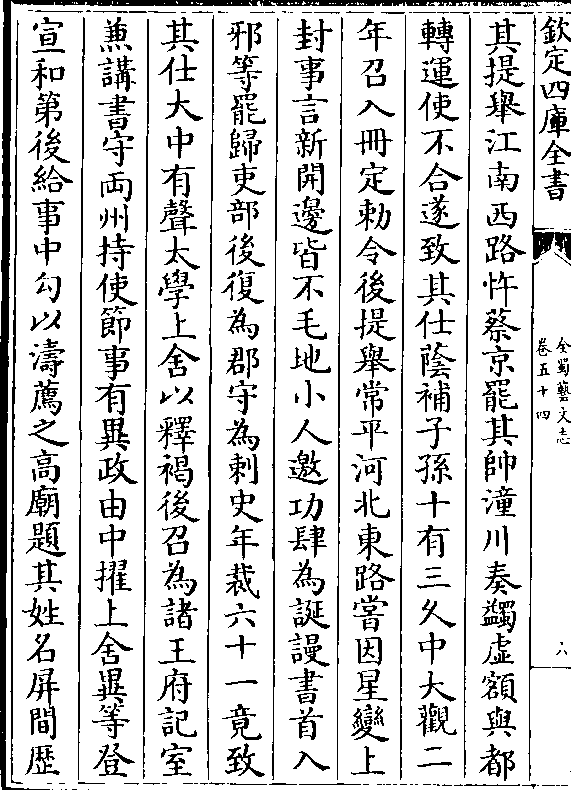 欽定四庫全書
全蜀藝文志
卷五十四
六
其提舉江南西路忤蔡京罷其帥潼川奏蠲虛額與都
轉運使不合遂致其仕蔭補子孫十有三乆中大觀二
年召入冊定勅令後提舉常平河北東路嘗因星變上
封事言新開邊皆不毛地小人邀功肆為誕謾書首入
邪等罷歸吏部後復為郡守為刺史年裁六十一竟致
其仕大中有聲太學上舍以釋褐後召為諸王府記室
兼講書守両州持使節事有異政由中擢上舍異等登
宣和第後給事中勾以濤薦之高廟題其姓名屏間歴